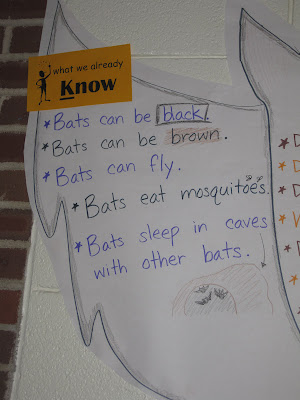 what we already
Know
*Bats can be black.
*Bats can be brown.
*Bats can fly.
*Bats eat mosquitoes.
*Bats sleep in caves
with other bats.